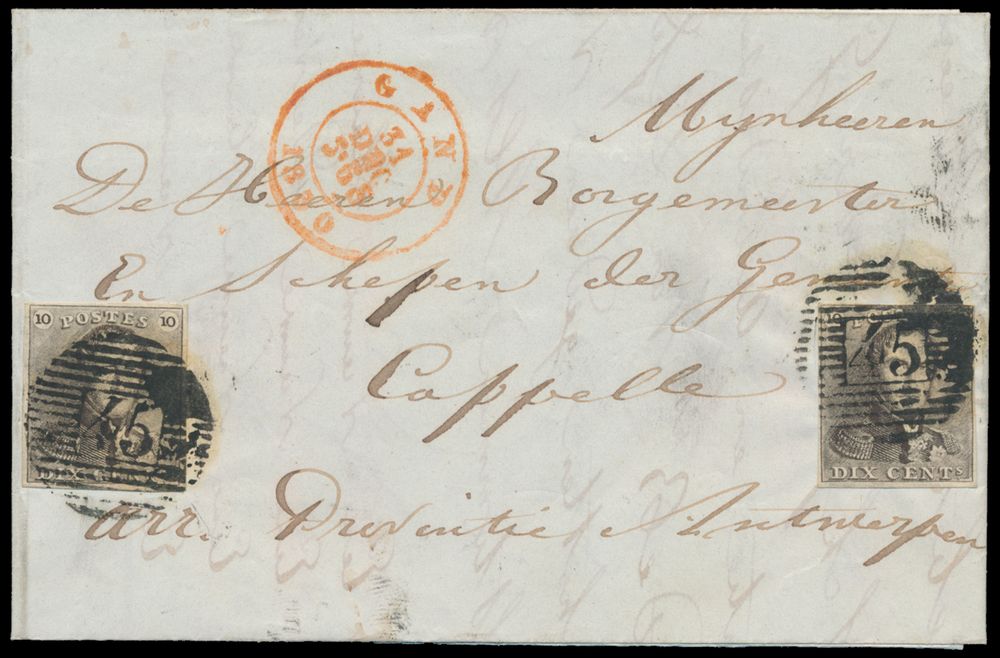 GAND
1850
31
DEC
5-6S
Mynheeren
De Heeren Borgemeester
En Schepen der Gemeente
Cappelle
Arr. Provintie Antwerpen
10 POSTES 10
45
DIX CENTS
10 PO
45
DIX CENTS